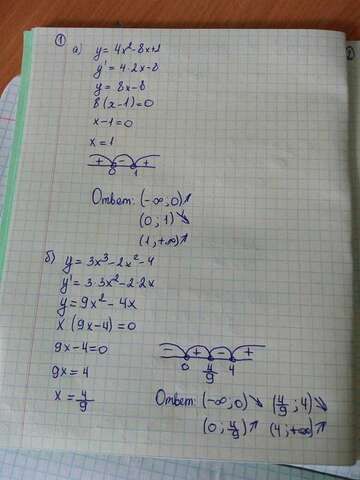 ①
а) y = 4x² - 8x + 1
y' = 4·2x - 8
y = 8x - 8
8(x - 1) = 0
x - 1 = 0
x = 1
+ - +
0 1
Ответ: (-∞, 0) ↗
(0; 1) ↘
(1, +∞) ↗
б) y = 3x³ - 2x² - 4
y' = 3·3x² - 2·2x
y = 9x² - 4x
x (9x - 4) = 0
9x - 4 = 0
9x = 4
x = 4/9
- + - +
0 4/9 4
Ответ: (-∞, 0) ↘ (4/9; 4) ↘
(0; 4/9) ↗ (4; +∞) ↗